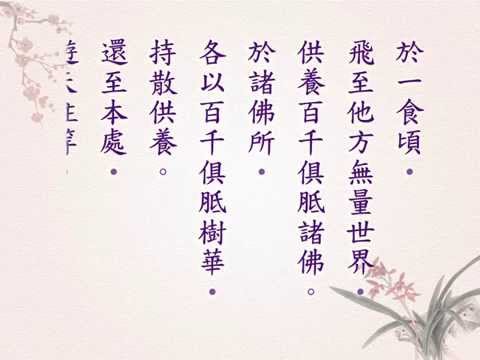 於一食頃•
飛至他方無量世界•
供養百千俱胝諸佛。
於諸佛所•
各以百千俱胝樹華•
持散供養。
還至本處•